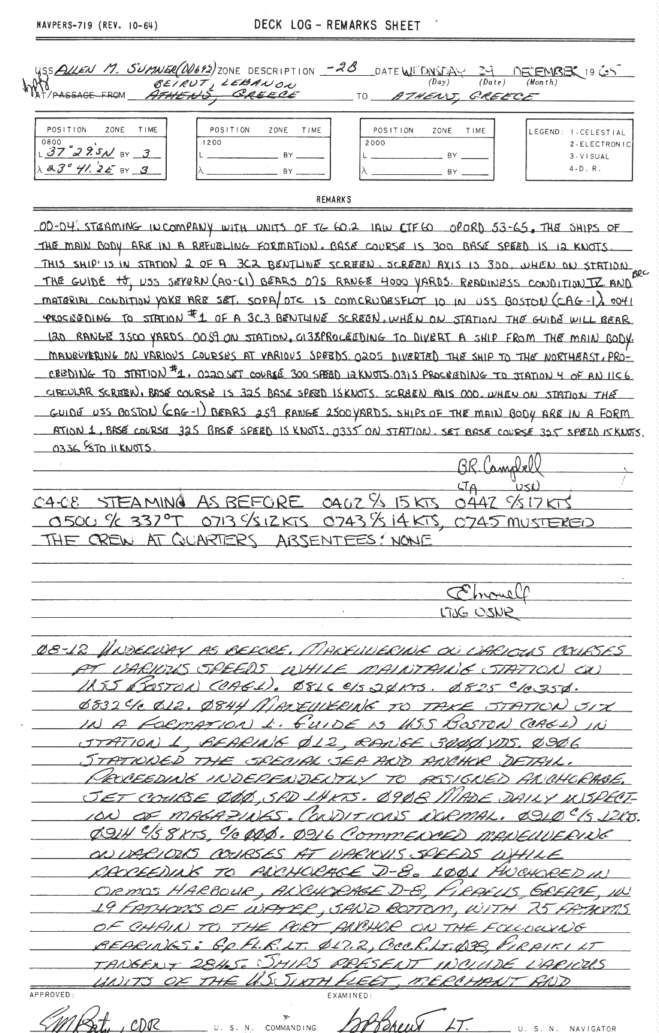 NAVPERS-719 (REV. 10-64)
DECK LOG – REMARKS SHEET
USS ALLEN M. SUMNER (DD692) ZONE DESCRIPTION -2B DATE WEDNSDAY 29 DECEMBER 1965
(Day) (Date) (Month)
BEIRUT, LEBANON
AT/PASSAGE FROM ATHENS, GREECE TO ATHENS, GREECE
POSITION ZONE TIME
0800
L 37° 29.5N BY 3
λ 23° 41.2E BY 3
POSITION ZONE TIME
1200
L BY
λ BY
POSITION ZONE TIME
2000
L BY
λ BY
LEGEND: 1-CELESTIAL
2-ELECTRONIC
3-VISUAL
4-D. R.
REMARKS
00-04. STEAMING IN COMPANY WITH UNITS OF TG 60.2 IAW CTF60 OPORD 53-65. THE SHIPS OF
THE MAIN BODY ARE IN A REFUELING FORMATION. BASE COURSE IS 300 BASE SPEED IS 12 KNOTS.
THIS SHIP IS IN STATION 2 OF A 3C2 BENTLINE SCREEN. SCREEN AXIS IS 300. WHEN ON STATION
THE GUIDE USS SEVERN (AO-61) BEARS 075 RANGE 4000 YARDS. READINESS CONDITION IV AND
MATERIAL CONDITION YOKE ARE SET. SOPA/OTC IS COMCRUDESFLOT 10 IN USS BOSTON (CAG-1). 0041
PROCEEDING TO STATION #1 OF A 3C3 BENTLINE SCREEN. WHEN ON STATION THE GUIDE WILL BEAR
120 RANGE 3500 YARDS 0059 ON STATION. 0138 PROCEEDING TO DIVERT A SHIP FROM THE MAIN BODY.
MANEUVERING ON VARIOUS COURSES AT VARIOUS SPEEDS 0205 DIVERTED THE SHIP TO THE NORTHEAST. PRO-
CEEDING TO STATION #1. 0220 SET COURSE 300 SPEED 12 KNOTS. 0315 PROCEEDING TO STATION 4 OF AN 11C6
CIRCULAR SCREEN. BASE COURSE IS 325 BASE SPEED 15 KNOTS. SCREEN AXIS 000. WHEN ON STATION THE
GUIDE USS BOSTON (CAG-1) BEARS 259 RANGE 2500 YARDS. SHIPS OF THE MAIN BODY ARE IN A FORM
ATION 1, BASE COURSE 325 BASE SPEED IS KNOTS. 0335 ON STATION. SET BASE COURSE 325 SPEED 15 KNOTS.
0336 C/S TO 11 KNOTS.
B.R. Campbell
LTJG USN
04-08 STEAMING AS BEFORE 0402 C/S 15 KTS 0442 C/S 17 KTS
0500 C/C 337°T 0713 C/S 12 KTS 0743 C/S 14 KTS, 0745 MUSTERED
THE CREW AT QUARTERS ABSENTEES: NONE
LTJG USNR
08-12 UNDERWAY AS BEFORE. MANEUVERING ON VARIOUS COURSES
AT VARIOUS SPEEDS WHILE MAINTAINING STATION ON
USS BOSTON (CAG1). 0816 C/S 20 KTS. 0825 C/C 350.
0832 C/C 012. 0844 MANEUVERING TO TAKE STATION SIX
IN A FORMATION 1. GUIDE IS USS BOSTON (CAG1) IN
STATION 1, BEARING 012, RANGE 3000 YDS. 0906
STATIONED THE SPECIAL SEA AND ANCHOR DETAIL.
PROCEEDING INDEPENDENTLY TO ASSIGNED ANCHORAGE.
SET COURSE 000, SPD 14 KTS. 0908 MADE DAILY INSPECT-
ION OF MAGAZINES. CONDITIONS NORMAL. 0910 C/S 12 KTS.
0914 C/S 8 KTS, C/C 000. 0916 COMMENCED MANEUVERING
ON VARIOUS COURSES AT VARIOUS SPEEDS WHILE
PROCEEDING TO ANCHORAGE D-8. 1001 ANCHORED IN
ORMOS HARBOUR, ANCHORAGE D-8, PIRAEUS, GREECE, IN
19 FATHOMS OF WATER, SAND BOTTOM, WITH 75 FATHOMS
OF CHAIN TO THE PORT ANCHOR ON THE FOLLOWING
BEARINGS: Gp FL.R.LT. 017.2, Occ.R.LT. 038, PIRAIKI LT
TANGENT 284.5. SHIPS PRESENT INCLUDE VARIOUS
UNITS OF THE U.S. SIXTH FLEET, MERCHANT AND
APPROVED: EXAMINED:
CDR U. S. N. COMMANDING LT. U. S. N. NAVIGATOR